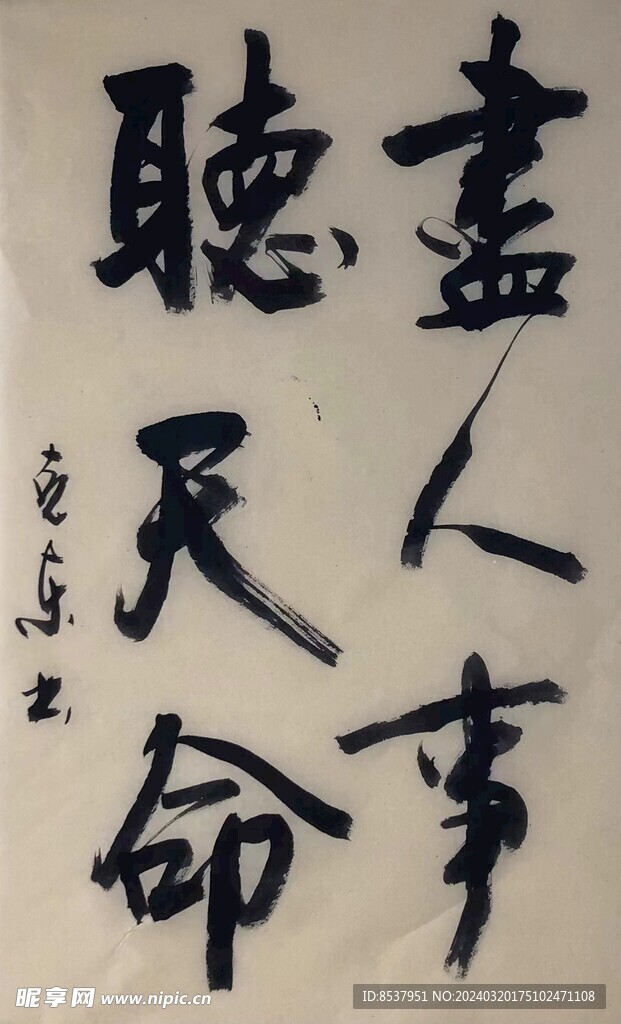 盡人事
聽天命
克东书
昵享网 www.nipic.cn
ID:8537951 NO:20240320175102471108